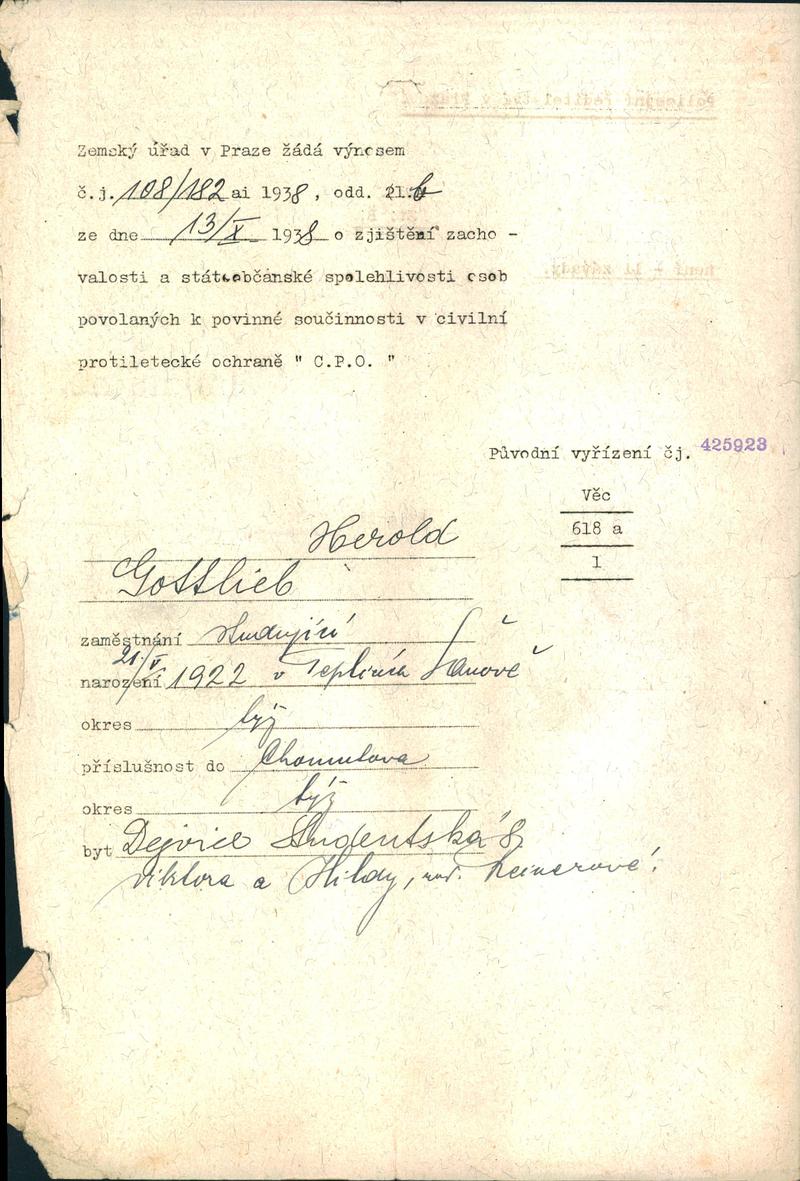 Zemský úřad v Praze žádá výnosem
č.j. 108/182 ai 1938, odd. 21.b
ze dne 13/X 1938 o zjištění zacho -
valosti a státoobčanské spolehlivosti osob
povolaných k povinné součinnosti v civilní
protiletecké ochraně " C.P.O. "
Původní vyřízení čj. 425923
Věc
618 a
1
Herold
Gottlieb
zaměstnání studující
narození 21./V. 1922 v Teplicích Šanově
okres týž
příslušnost do Chomutova
okres týž
byt Dejvice Studentská 8
Viktora a Hildy, roz. Reinerové.